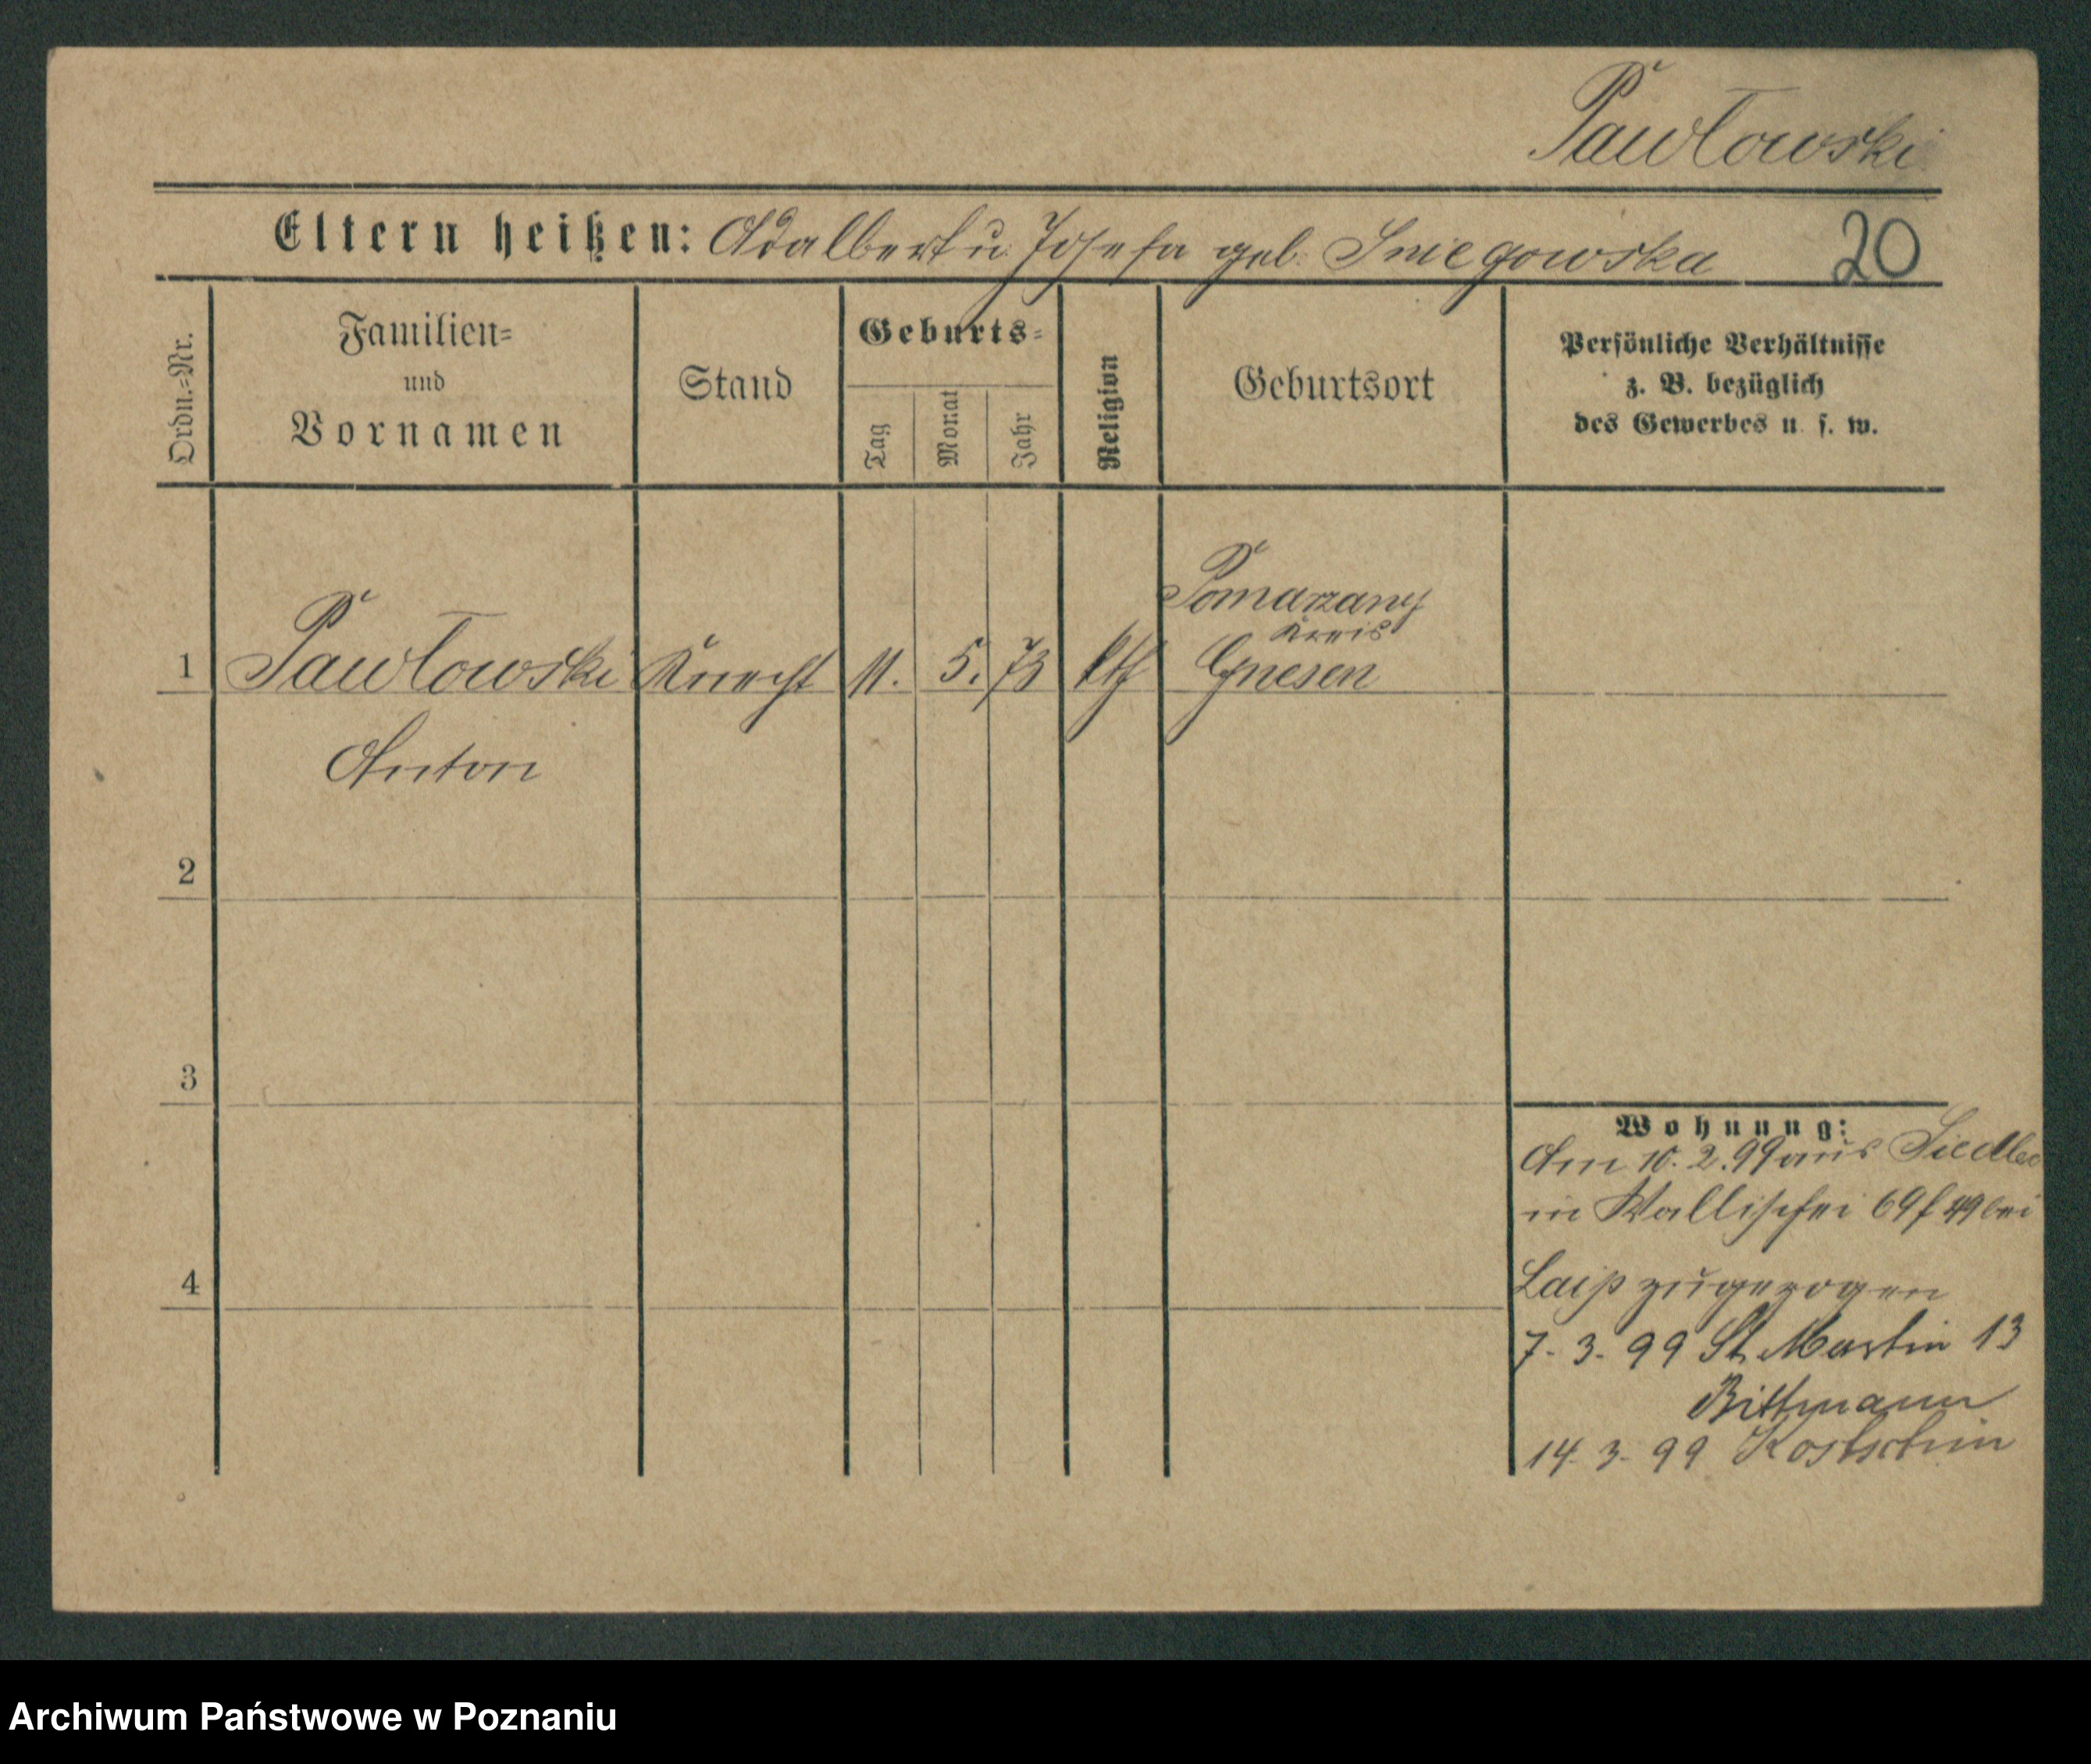 Pawłowski
Eltern heißen: Adalbert u. Josefa geb. Sniegowska 20
Ordn.=Nr.
Familien=
und
Vornamen
Stand
Geburts=
Tag
Monat
Jahr
Religion
Geburtsort
Persönliche Verhältnisse
z. B. bezüglich
des Gewerbes u. s. w.
Pomarzany
Kreis
1 Pawłowski Knecht 11. 5. 73 kth Gnesen
Anton
2
3
4
Wohnung:
Am 10. 2. 99 aus Siedlec
in Wallischei 69/ 49 bei
Laip zugezogen
7. 3. 99 St. Martin 13
Bittmann
14. 3. 99 Kostschin
Archiwum Państwowe w Poznaniu